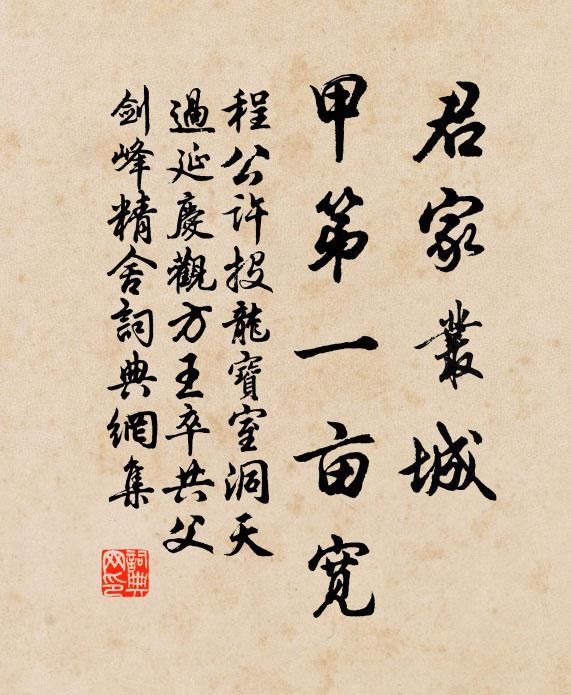 君家叢城
甲第一亩寬
程公許投龍寶室洞天
過延慶觀方王卒共父
劍峰精舍詞典網集
詞典網印